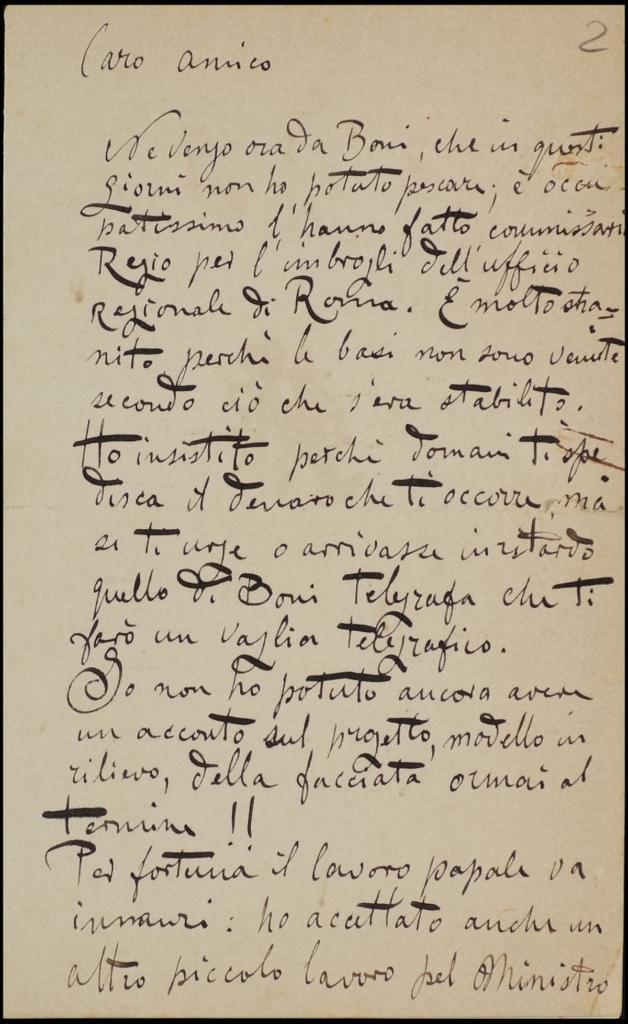 2
Caro amico
Ne vengo ora da Boni, che in questi
giorni non ho potuto pescare; è occu
patissimo l'hanno fatto commissari
Regio per l'imbrogli dell'ufficio
regionale di Roma. È molto stra=
nito perchè le basi non sono venute
secondo ciò che s'era stabilito.
Ho insistito perchè domani ti spe
disca il denaro che ti occorre, ma
se ti urge o arrivasse in ritardo
quello di Boni telegrafa che ti
farò un vaglia telegrafico.
Io non ho potuto ancora avere
un acconto sul progetto, modello in
rilievo, della facciata ormai al
termine !!
Per fortuna il lavoro papale va
innanzi: ho accettato anche un
altro piccolo lavoro pel Ministro